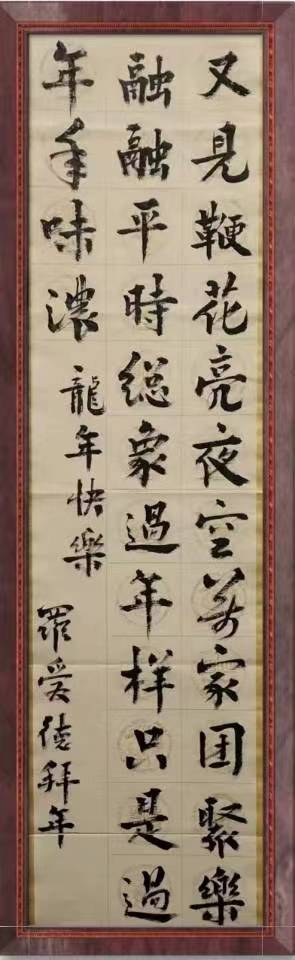 又見鞭花亮夜空萬家团聚樂
融融平時総象過年样只是過
年年味濃
龍年快樂
羅爱德拜年